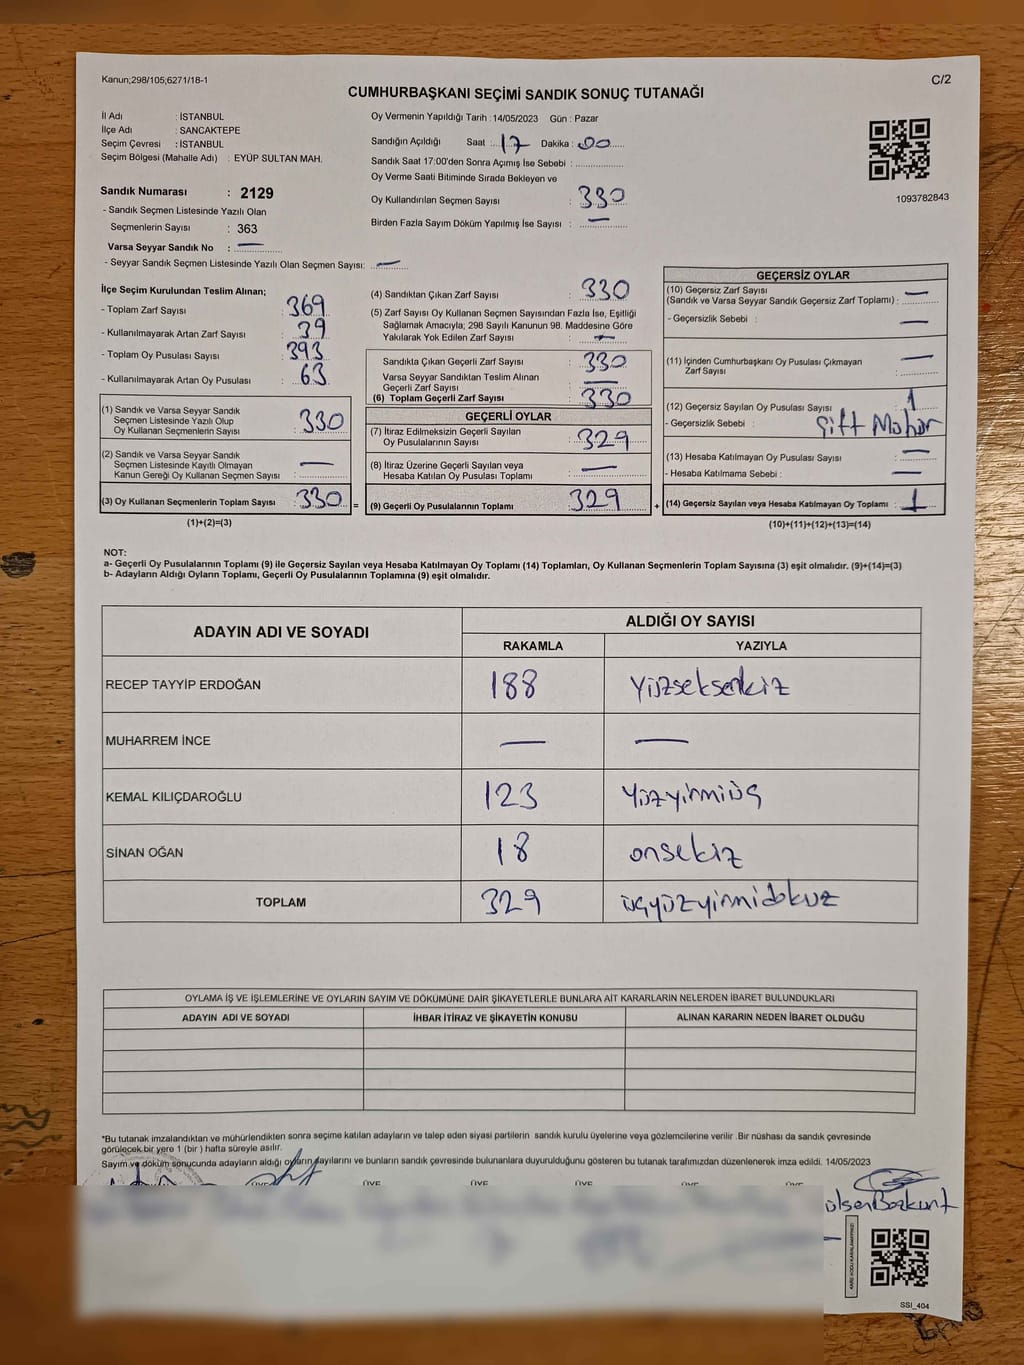 Kanun;298/105;6271/18-1
C/2
CUMHURBAŞKANI SEÇİMİ SANDIK SONUÇ TUTANAĞI
İl Adı : İSTANBUL
İlçe Adı : SANCAKTEPE
Seçim Çevresi : İSTANBUL
Seçim Bölgesi (Mahalle Adı) : EYÜP SULTAN MAH.
Sandık Numarası : 2129
- Sandık Seçmen Listesinde Yazılı Olan
Seçmenlerin Sayısı : 363
Varsa Seyyar Sandık No : —
- Seyyar Sandık Seçmen Listesinde Yazılı Olan Seçmen Sayısı: —
Oy Vermenin Yapıldığı Tarih : 14/05/2023 Gün : Pazar
Sandığın Açıldığı Saat : 17 Dakika : 00
Sandık Saat 17:00'den Sonra Açımış İse Sebebi :
Oy Verme Saati Bitiminde Sırada Bekleyen ve
Oy Kullandırılan Seçmen Sayısı : 330
Birden Fazla Sayım Döküm Yapılmış İse Sayısı : —
1093782843
İlçe Seçim Kurulundan Teslim Alınan;
- Toplam Zarf Sayısı : 369
- Kullanılmayarak Artan Zarf Sayısı : 39
- Toplam Oy Pusulası Sayısı : 393
- Kullanılmayarak Artan Oy Pusulası : 63
(1) Sandık ve Varsa Seyyar Sandık
Seçmen Listesinde Yazılı Olup
Oy Kullanan Seçmenlerin Sayısı : 330
(2) Sandık ve Varsa Seyyar Sandık
Seçmen Listesinde Kayıtlı Olmayan
Kanun Gereği Oy Kullanan Seçmen Sayısı : —
(3) Oy Kullanan Seçmenlerin Toplam Sayısı : 330 =
(1)+(2)=(3)
(4) Sandıktan Çıkan Zarf Sayısı : 330
(5) Zarf Sayısı Oy Kullanan Seçmen Sayısından Fazla İse, Eşitliği
Sağlamak Amacıyla; 298 Sayılı Kanunun 98. Maddesine Göre
Yakılarak Yok Edilen Zarf Sayısı : —
Sandıkta Çıkan Geçerli Zarf Sayısı : 330
Varsa Seyyar Sandıktan Teslim Alınan
Geçerli Zarf Sayısı : —
(6) Toplam Geçerli Zarf Sayısı : 330
GEÇERLİ OYLAR
(7) İtiraz Edilmeksizin Geçerli Sayılan
Oy Pusulalarının Sayısı : 329
(8) İtiraz Üzerine Geçerli Sayılan veya
Hesaba Katılan Oy Pusulası Toplamı : —
(9) Geçerli Oy Pusulalarının Toplamı : 329 +
GEÇERSİZ OYLAR
(10) Geçersiz Zarf Sayısı —
(Sandık ve Varsa Seyyar Sandık Geçersiz Zarf Toplamı) :
- Geçersizlik Sebebi : —
(11) İçinden Cumhurbaşkanı Oy Pusulası Çıkmayan —
Zarf Sayısı :
(12) Geçersiz Sayılan Oy Pusulası Sayısı : 1
- Geçersizlik Sebebi : Çift Mühür
(13) Hesaba Katılmayan Oy Pusulası Sayısı : —
- Hesaba Katılmama Sebebi : —
(14) Geçersiz Sayılan veya Hesaba Katılmayan Oy Toplamı : 1
(10)+(11)+(12)+(13)=(14)
NOT:
a- Geçerli Oy Pusulalarının Toplamı (9) ile Geçersiz Sayılan veya Hesaba Katılmayan Oy Toplamı (14) Toplamları, Oy Kullanan Seçmenlerin Toplam Sayısına (3) eşit olmalıdır. (9)+(14)=(3)
b- Adayların Aldığı Oyların Toplamı, Geçerli Oy Pusulalarının Toplamına (9) eşit olmalıdır.
ADAYIN ADI VE SOYADI
ALDIĞI OY SAYISI
RAKAMLA YAZIYLA
RECEP TAYYİP ERDOĞAN 188 Yüzseksenkiz
MUHARREM İNCE — —
KEMAL KILIÇDAROĞLU 123 Yüzyirmiüç
SİNAN OĞAN 18 onsekiz
TOPLAM 329 üçyüzyirmidokuz
OYLAMA İŞ VE İŞLEMLERİNE VE OYLARIN SAYIM VE DÖKÜMÜNE DAİR ŞİKAYETLERLE BUNLARA AİT KARARLARIN NELERDEN İBARET BULUNDUKLARI
ADAYIN ADI VE SOYADI İHBAR İTİRAZ VE ŞİKAYETİN KONUSU ALINAN KARARIN NEDEN İBARET OLDUĞU
*Bu tutanak imzalandıktan ve mühürlendikten sonra seçime katılan adayların ve talep eden siyasi partilerin sandık kurulu üyelerine veya gözlemcilerine verilir .Bir nüshası da sandık çevresinde
görülecek bir yere 1 (bir ) hafta süreyle asılır.
Sayım ve döküm sonucunda adayların aldığı oyların sayılarını ve bunların sandık çevresinde bulunanlara duyurulduğunu gösteren bu tutanak tarafımızdan düzenlenerek imza edildi. 14/05/2023
ÜYE ÜYE ÜYE ÜYE ÜYE ÜYE
ülser Bozkurt
SSI_404